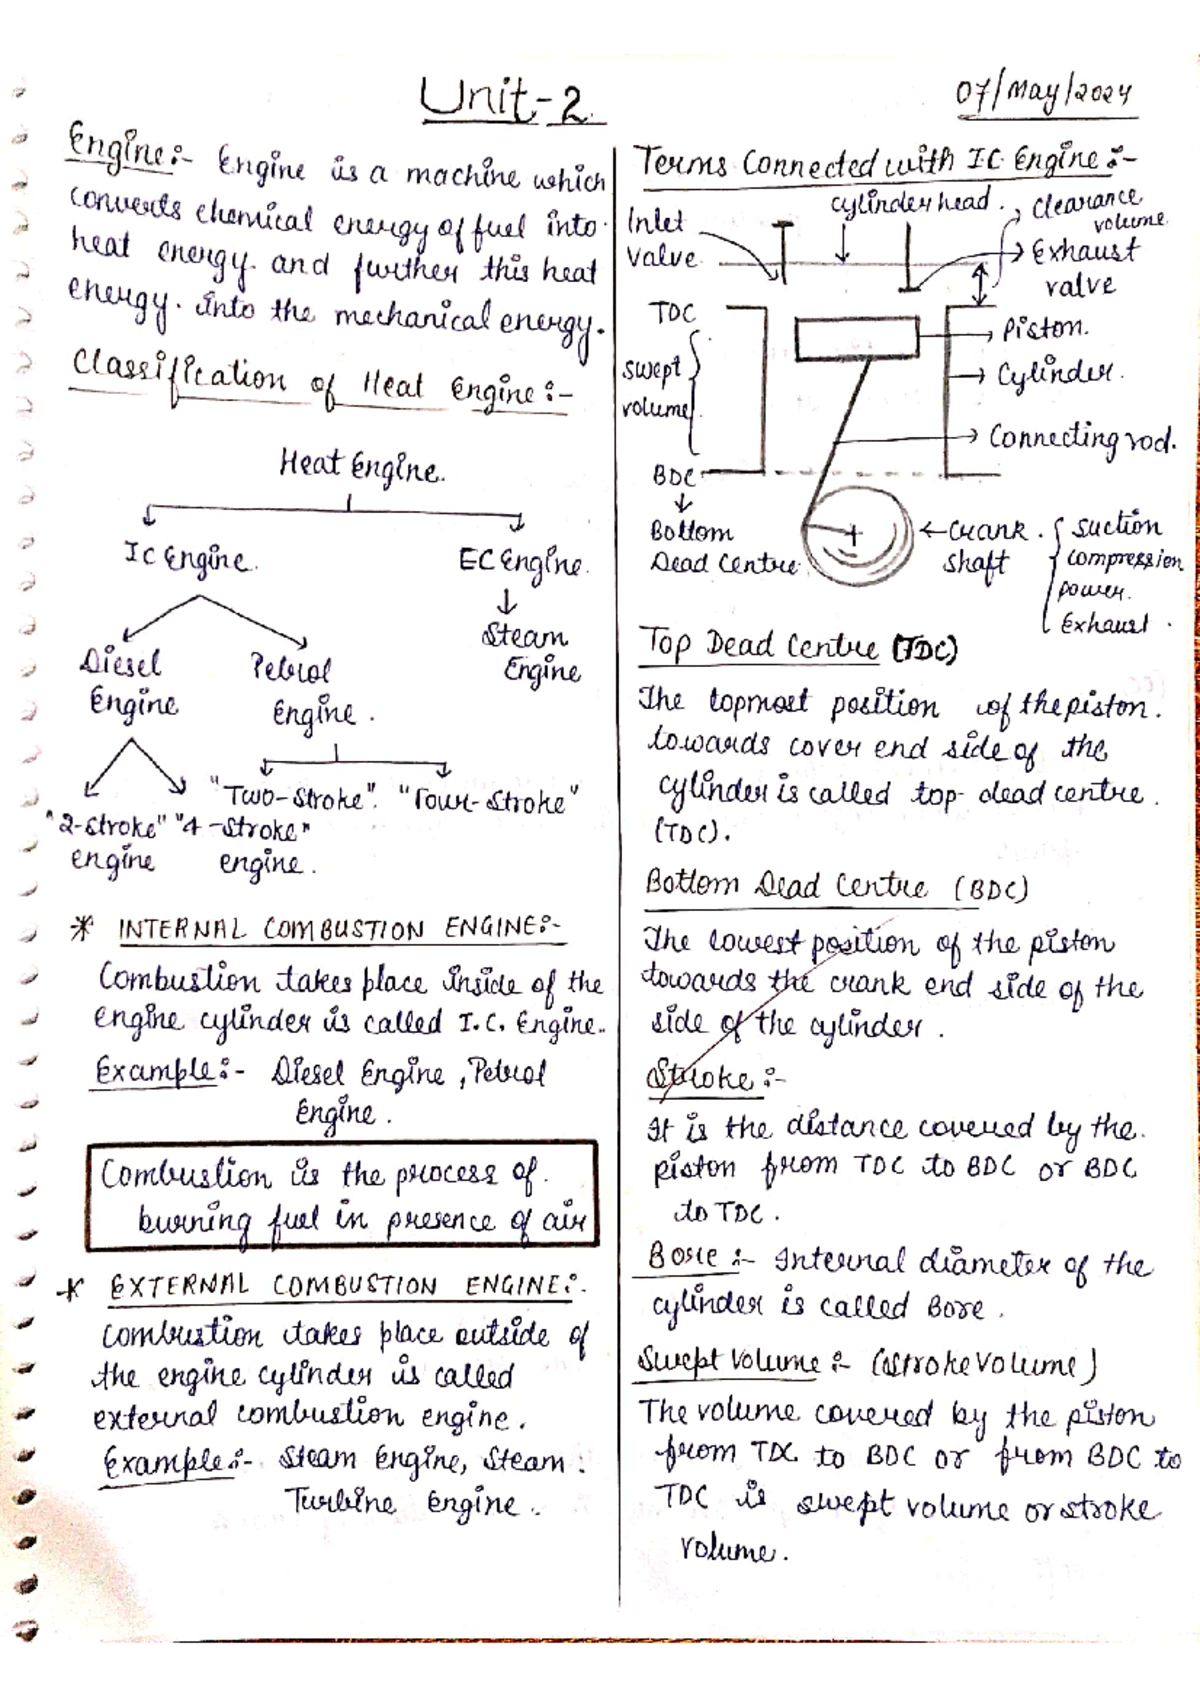 Unit-2.
07/May/2024
Engine:- Engine is a machine which
converts chemical energy of fuel into
heat energy and further this heat
energy. into the mechanical energy.
Classification of Heat Engine:-
Heat Engine.
IC Engine.
EC Engine.
Diesel
Engine
Petrol
Engine.
Steam
Engine
"2-stroke"
engine
"4-stroke"
engine.
"Two-Stroke".
"Four-Stroke"
* INTERNAL COMBUSTION ENGINE:-
Combustion takes place inside of the
engine cylinder is called I.C. Engine.
Example:- Diesel Engine, Petrol
Engine.
Combustion is the process of.
burning fuel in presence of air
* EXTERNAL COMBUSTION ENGINE:-
Combustion takes place outside of
the engine cylinder is called
external combustion engine.
Example:- Steam Engine, Steam
Turbine Engine.
Terms Connected with IC Engine:-
Inlet
Valve.
cylinder head.
Clearance
volume.
Exhaust
valve
TDC
Piston.
swept
volume.
Cylinder.
Connecting rod.
BDC
Bottom
Dead Centre.
Crank
Shaft
Suction
Compression
power.
Exhaust.
Top Dead Centre (TDC)
The topmost position of the piston.
towards cover end side of the
cylinder is called top dead centre.
(TDC).
Bottom Dead Centre (BDC)
The lowest position of the piston
towards the crank end side of the
side of the cylinder.
Stroke:-
It is the distance covered by the.
piston from TDC to BDC or BDC
to TDC.
Bore:- Internal diameter of the
cylinder is called Bore.
Swept Volume:- (Stroke Volume)
The volume covered by the piston
from TDC to BDC or from BDC to
TDC is swept volume or stroke
volume.